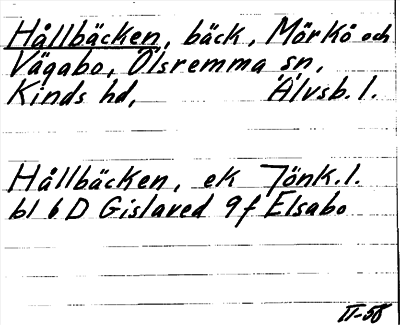 Hållbäcken, bäck, Mörkö och
Vägabo, Ölsremma sn,
Kinds hd, Älvsb. l.
Hållbäcken, ek Jönk. l.
bl 6 D Gislaved 9 f Elsabo
II-58